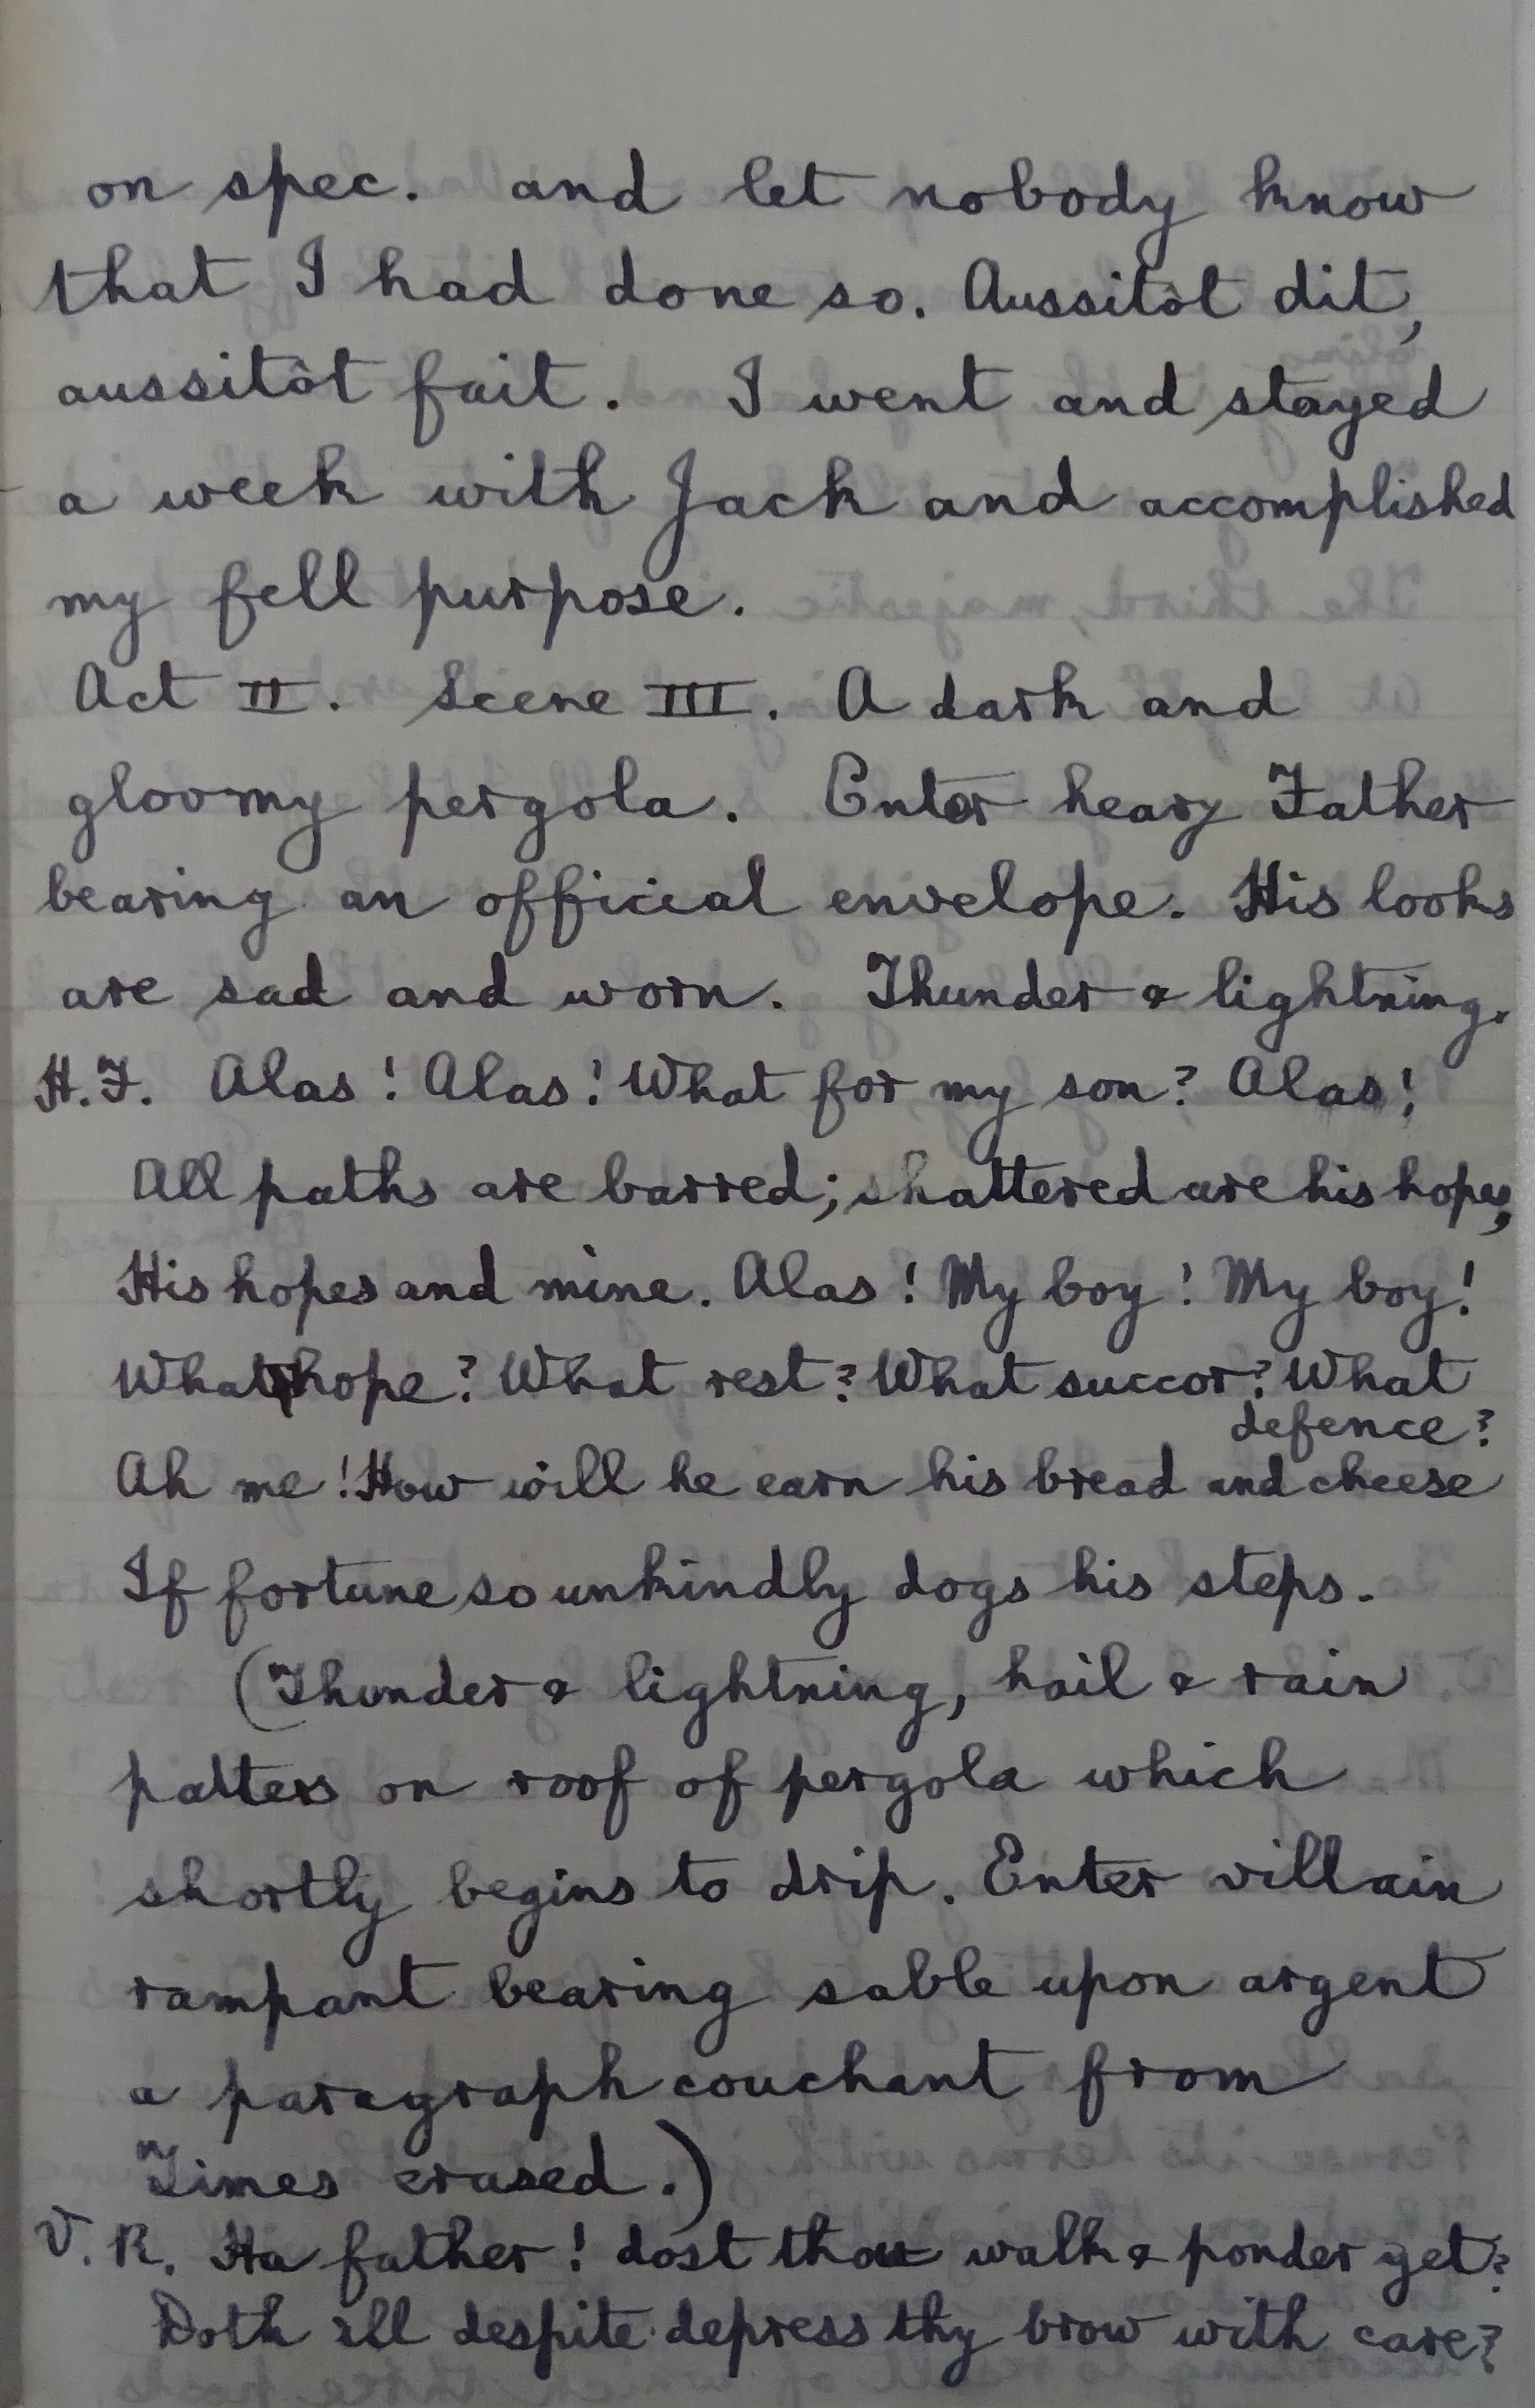 on spec. and let nobody know
that I had done so. Aussitôt dit,
aussitôt fait. I went and stayed
a week with Jack and accomplished
my fell purpose.
Act II. Scene III. A dark and
gloomy pergola. Enter heavy Father
bearing an official envelope. His looks
are sad and worn. Thunder & lightning.
H.F. Alas! Alas! What for my son? Alas!
All paths are barred; shattered are his hopes,
His hopes and mine. Alas! My boy! My boy!
What hope? What rest? What succor? What
defence?
Ah me! How will he earn his bread and cheese
If fortune so unkindly dogs his steps.
(Thunder & lightning, hail & rain
patters on roof of pergola which
shortly begins to drip. Enter villain
rampant bearing sable upon argent
a paragraph couchant from
Times erased.)
V. R. Ha father! dost thou walk & ponder yet?
Doth ill despite depress thy brow with care?